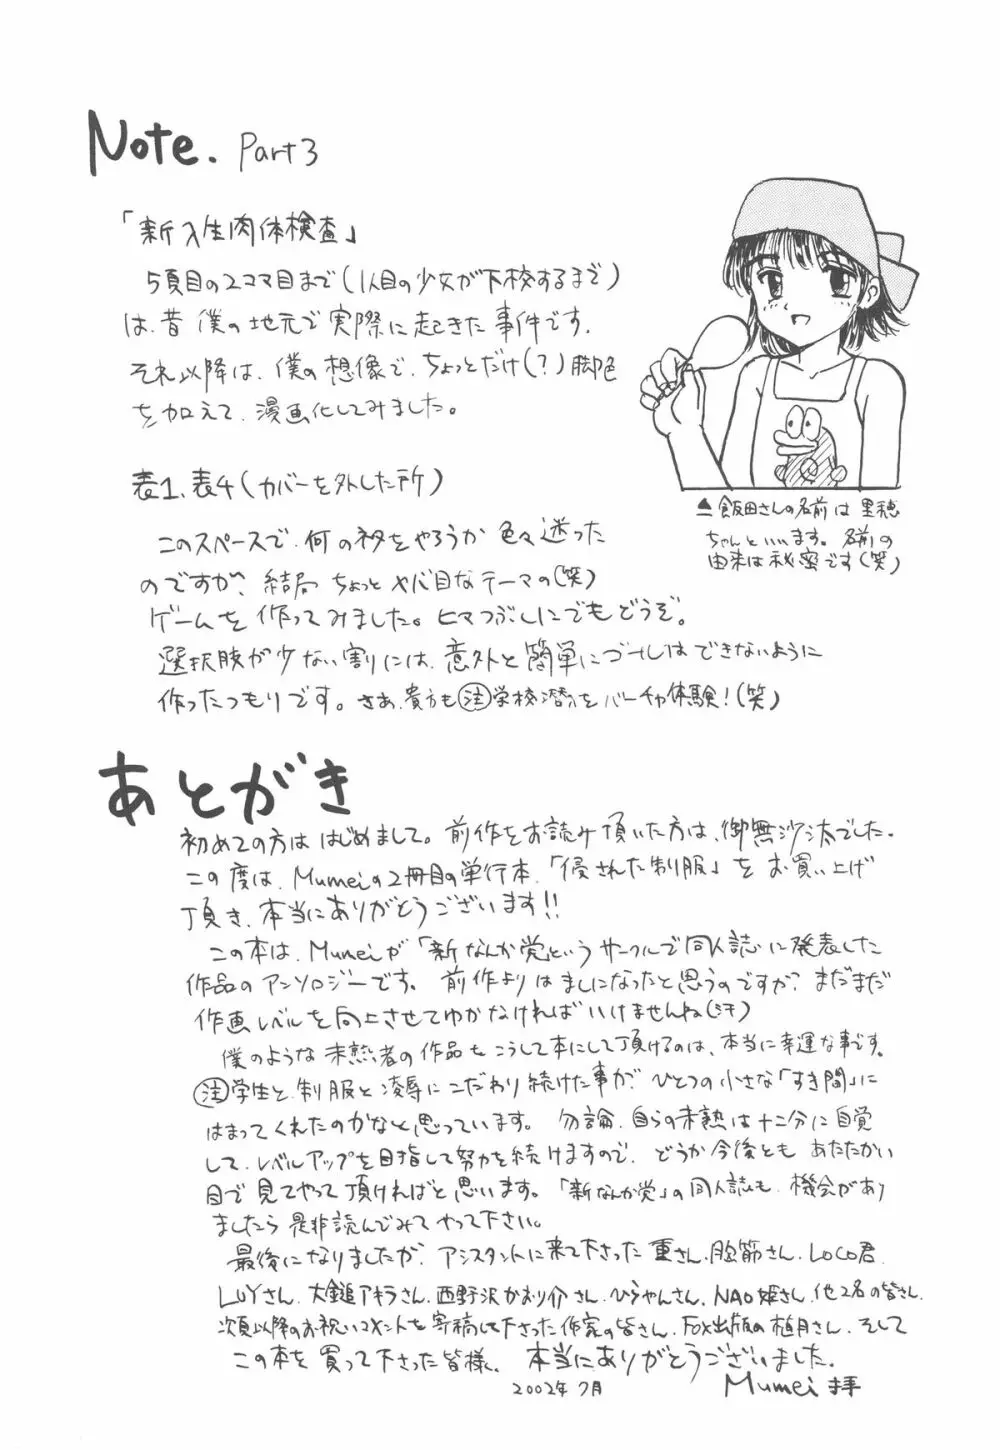 Note. Part 3
「新入生肉体検査」
5頁目の2コマ目まで(1人目の少女が下校するまで)
は、昔 僕の地元で実際に起きた事件です。
それ以降は、僕の想像で、ちょっとだけ(?)脚色
を加えて、漫画化してみました。
表1、表4(カバーを外した所)
このスペースで、何のネタをやろうか色々迷った
のですが、結局 ちょっとヤバ目なテーマの(笑)
ゲームを作ってみました。ヒマつぶしにでもどうぞ。
選択肢が少ない割りには、意外と簡単にゴールはできないように
作ったつもりです。さあ、貴方も(注)学校潜入をバーチャ体験!(笑)
▲飯田さんの名前は 里穂
ちゃんといいます。名前の
由来は秘密です(笑)
あとがき
初めての方は はじめまして。前作をお読み頂いた方は、御無沙汰でした。
この度は、Mumeiの2冊目の単行本、「侵された制服」を お買い上げ
頂き、本当にありがとうございます!!
この本は、Mumeiが「新なんか党」というサークルで同人誌に発表した
作品のアンソロジーです。前作よりはましになったと思うのですが、まだまだ
作画レベルを向上させてゆかなければいけませんね(汗)
僕のような未熟者の作品をこうして本にして頂けるのは、本当に幸運な事です。
(注)学生と、制服と凌辱にこだわり続けた事が、ひとつの小さな「すき間」に
はまってくれたのかなと思っています。勿論、自らの未熟は十二分に自覚
して、レベルアップを目指して努力を続けますので、どうか今後とも あたたかい
目で見てやって頂ければと思います。「新なんか党」の同人誌も、機会があり
ましたら 是非読んでみて やって下さい。
最後になりましたが、アシスタントに来て下さった 重さん、腔筋さん、LOCO君、
LUYさん、大鎚アキラさん、西野沢かおり介さん、ひらやんさん、NAO姫さん、他2名の皆さん、
次頁以降のお祝いコメントを寄稿して下さった作家の皆さん、FOX出版の植月さん、そして
この本を買って下さった皆様、本当にありがとうございました。
2002年7月 Mumei 拝